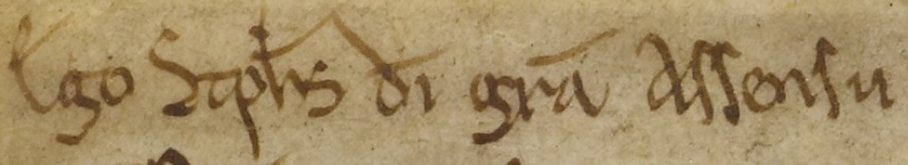 Ego Stephs di gra Assensu